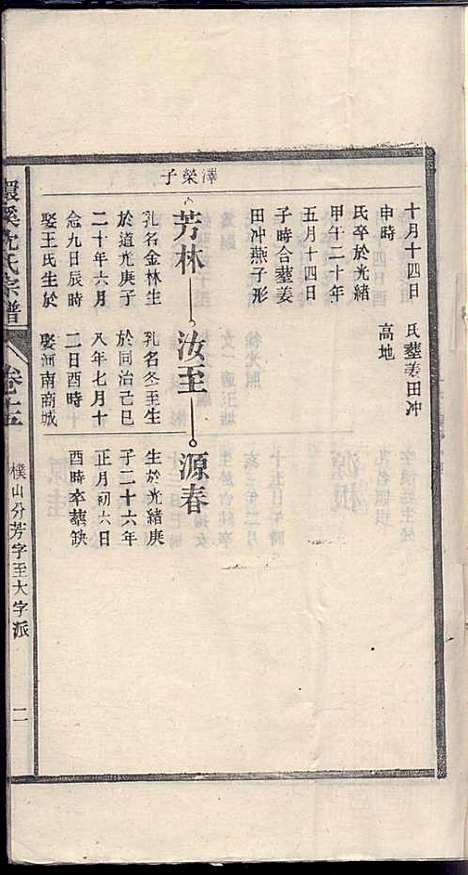 十月十四日
申時
氏卒於光緒
甲午二十年
五月十四日
子時合塟姜
田冲燕子形
氏塟姜田冲
高地
澤榮子
芳林
乳名金林生
於道光庚子
二十年六月
念九日辰時
娶王氏生於
汝至
乳名冬至生
於同治己巳
八年七月十
二日酉時
娶河南商城
源春
生於光緒庚
子二十六年
正月初六日
酉時卒塟缺
環溪沈氏宗譜
卷十五
樸山分芳字至大字派
二